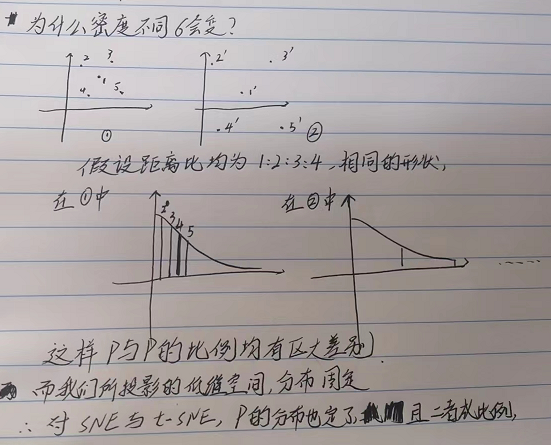 # 为什么密度不同6会变?
2 3 1 4 5
2' 3' 1' 4' 5'
① ②
假设距离比均为 1:2:3:4,相同的形状,
在①中 在②中
2 3 4 5
这样 P与P的比例均有巨大差别
而我们所投影的低维空间,分布固定
∴ 对 SNE 与 t-SNE, P的分布也定了 且二者成比例,